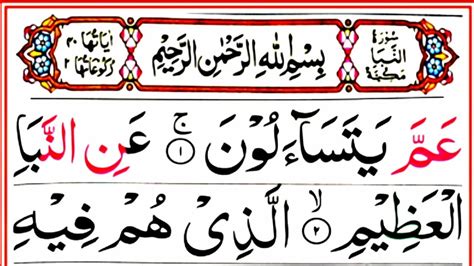 سُوْرَةُ النَّبَاِ مَكِّيَّةٌ
بِسْمِ اللّٰهِ الرَّحْمٰنِ الرَّحِيْمِ
اٰيَاتُهَا ٤٠ رُكُوْعَاتُهَا ٢
عَمَّ يَتَسَآءَلُوْنَ ۚ‏ ١ عَنِ النَّبَاِ
الْعَظِيْمِ ۙ‏ ٢ الَّذِىْ هُمْ فِيْهِ